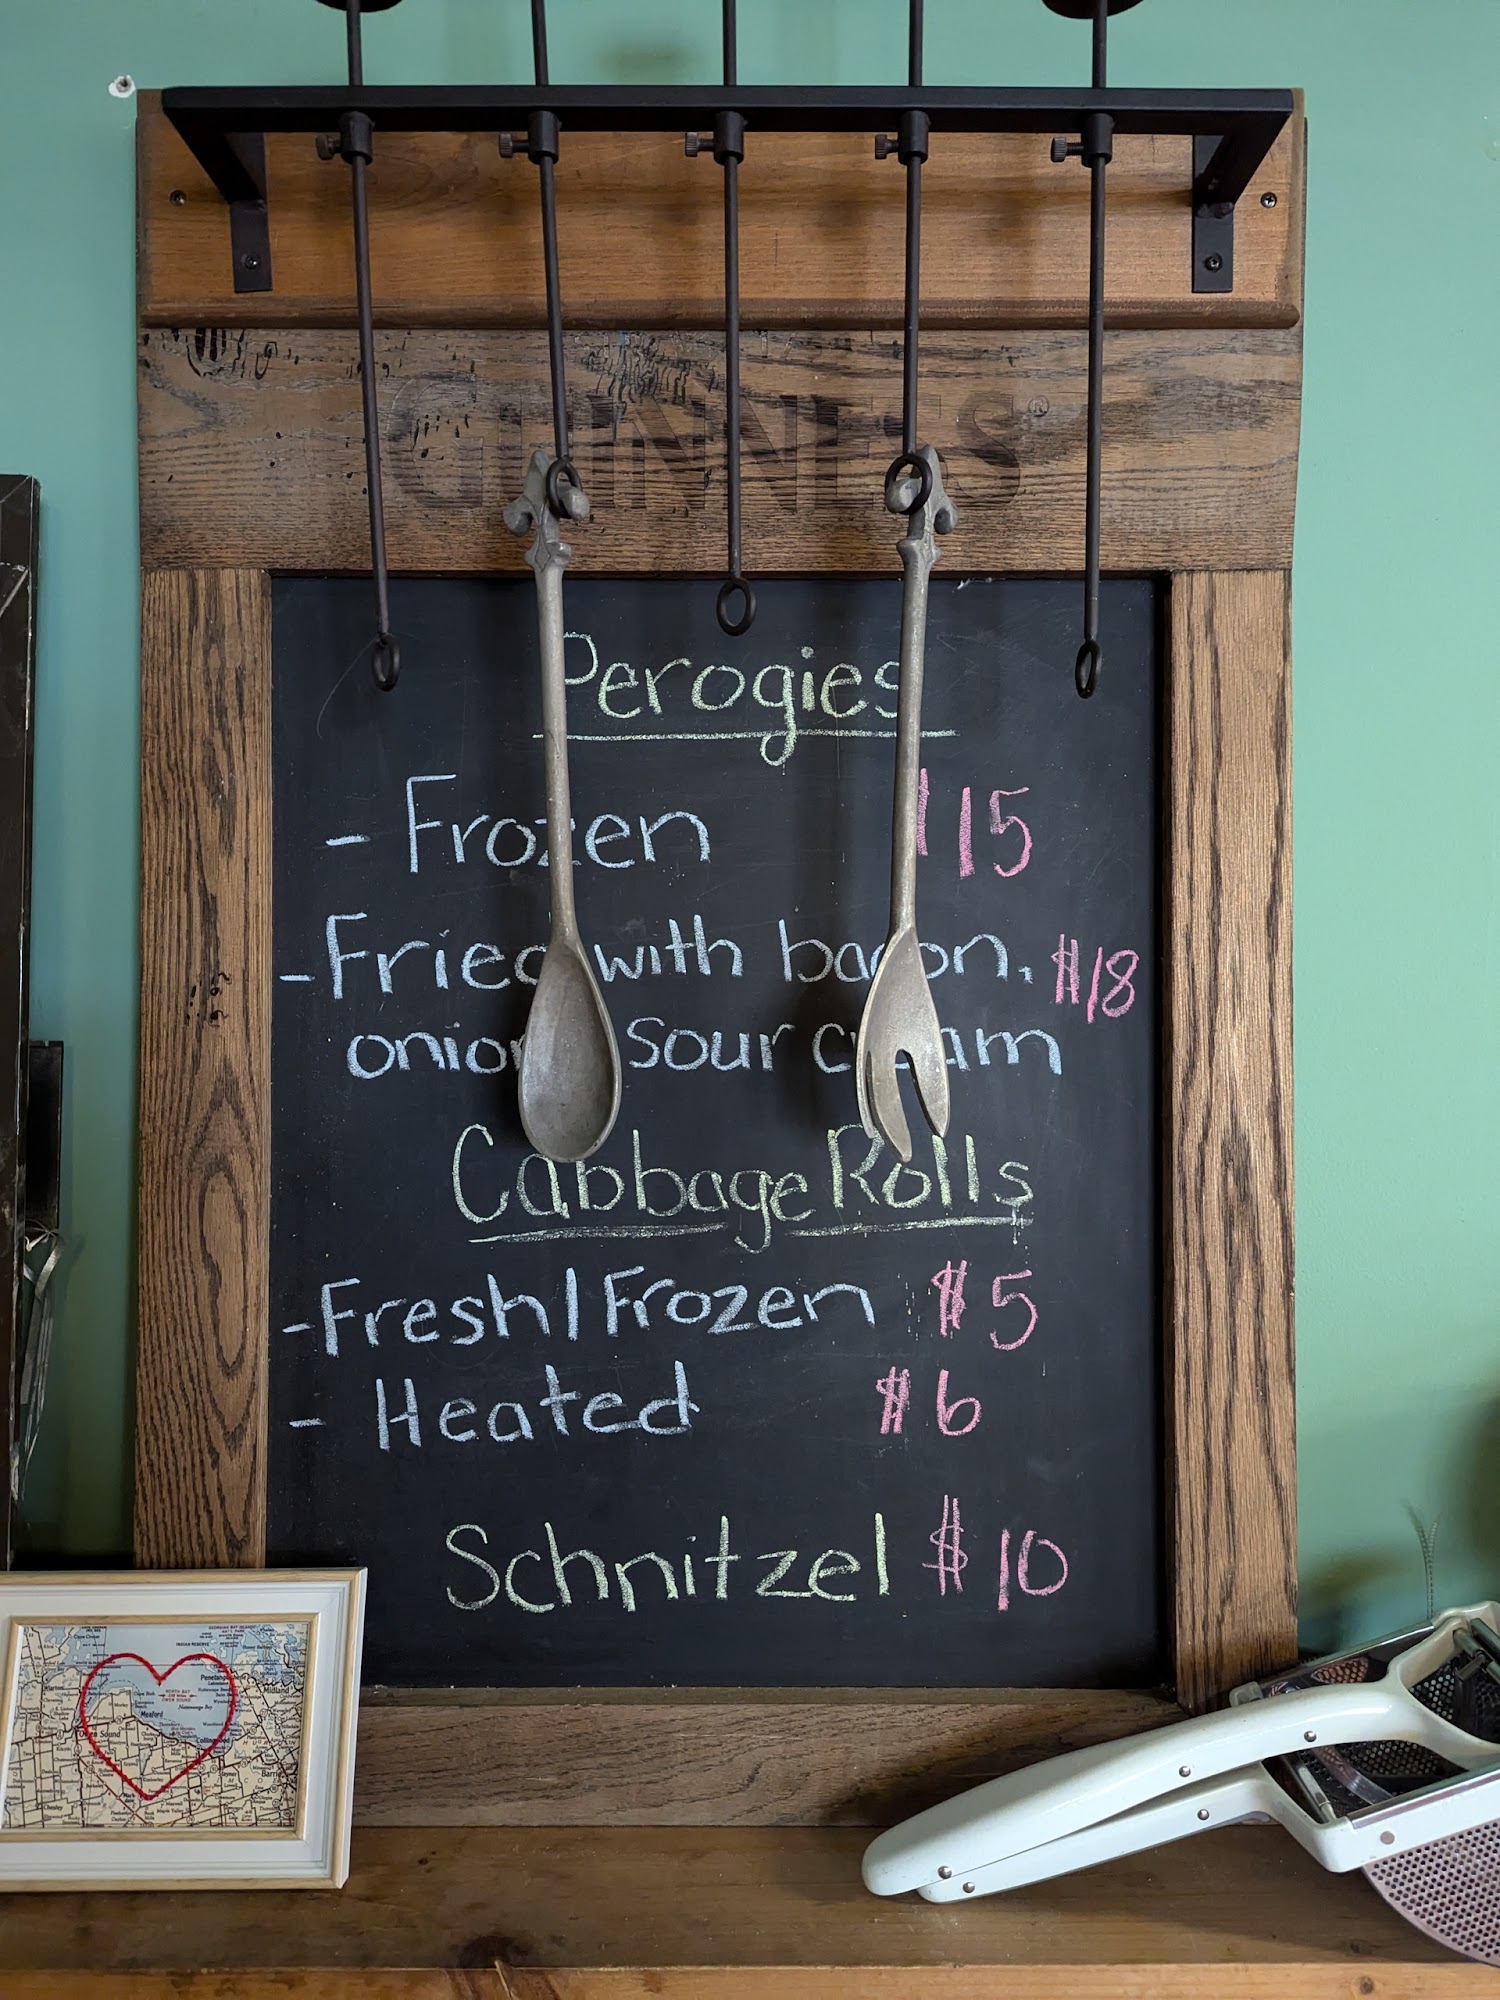 GUINNESS®
Perogies
- Frozen $15
- Fried with bacon, $18
onion, sour cream
Cabbage Rolls
- Fresh/Frozen $5
- Heated $6
Schnitzel $10
INDIAN RESERVE
Penetang
Midland
Meaford
Nottawasaga Bay
Owen Sound
Collingwood
Barrie
Chesley